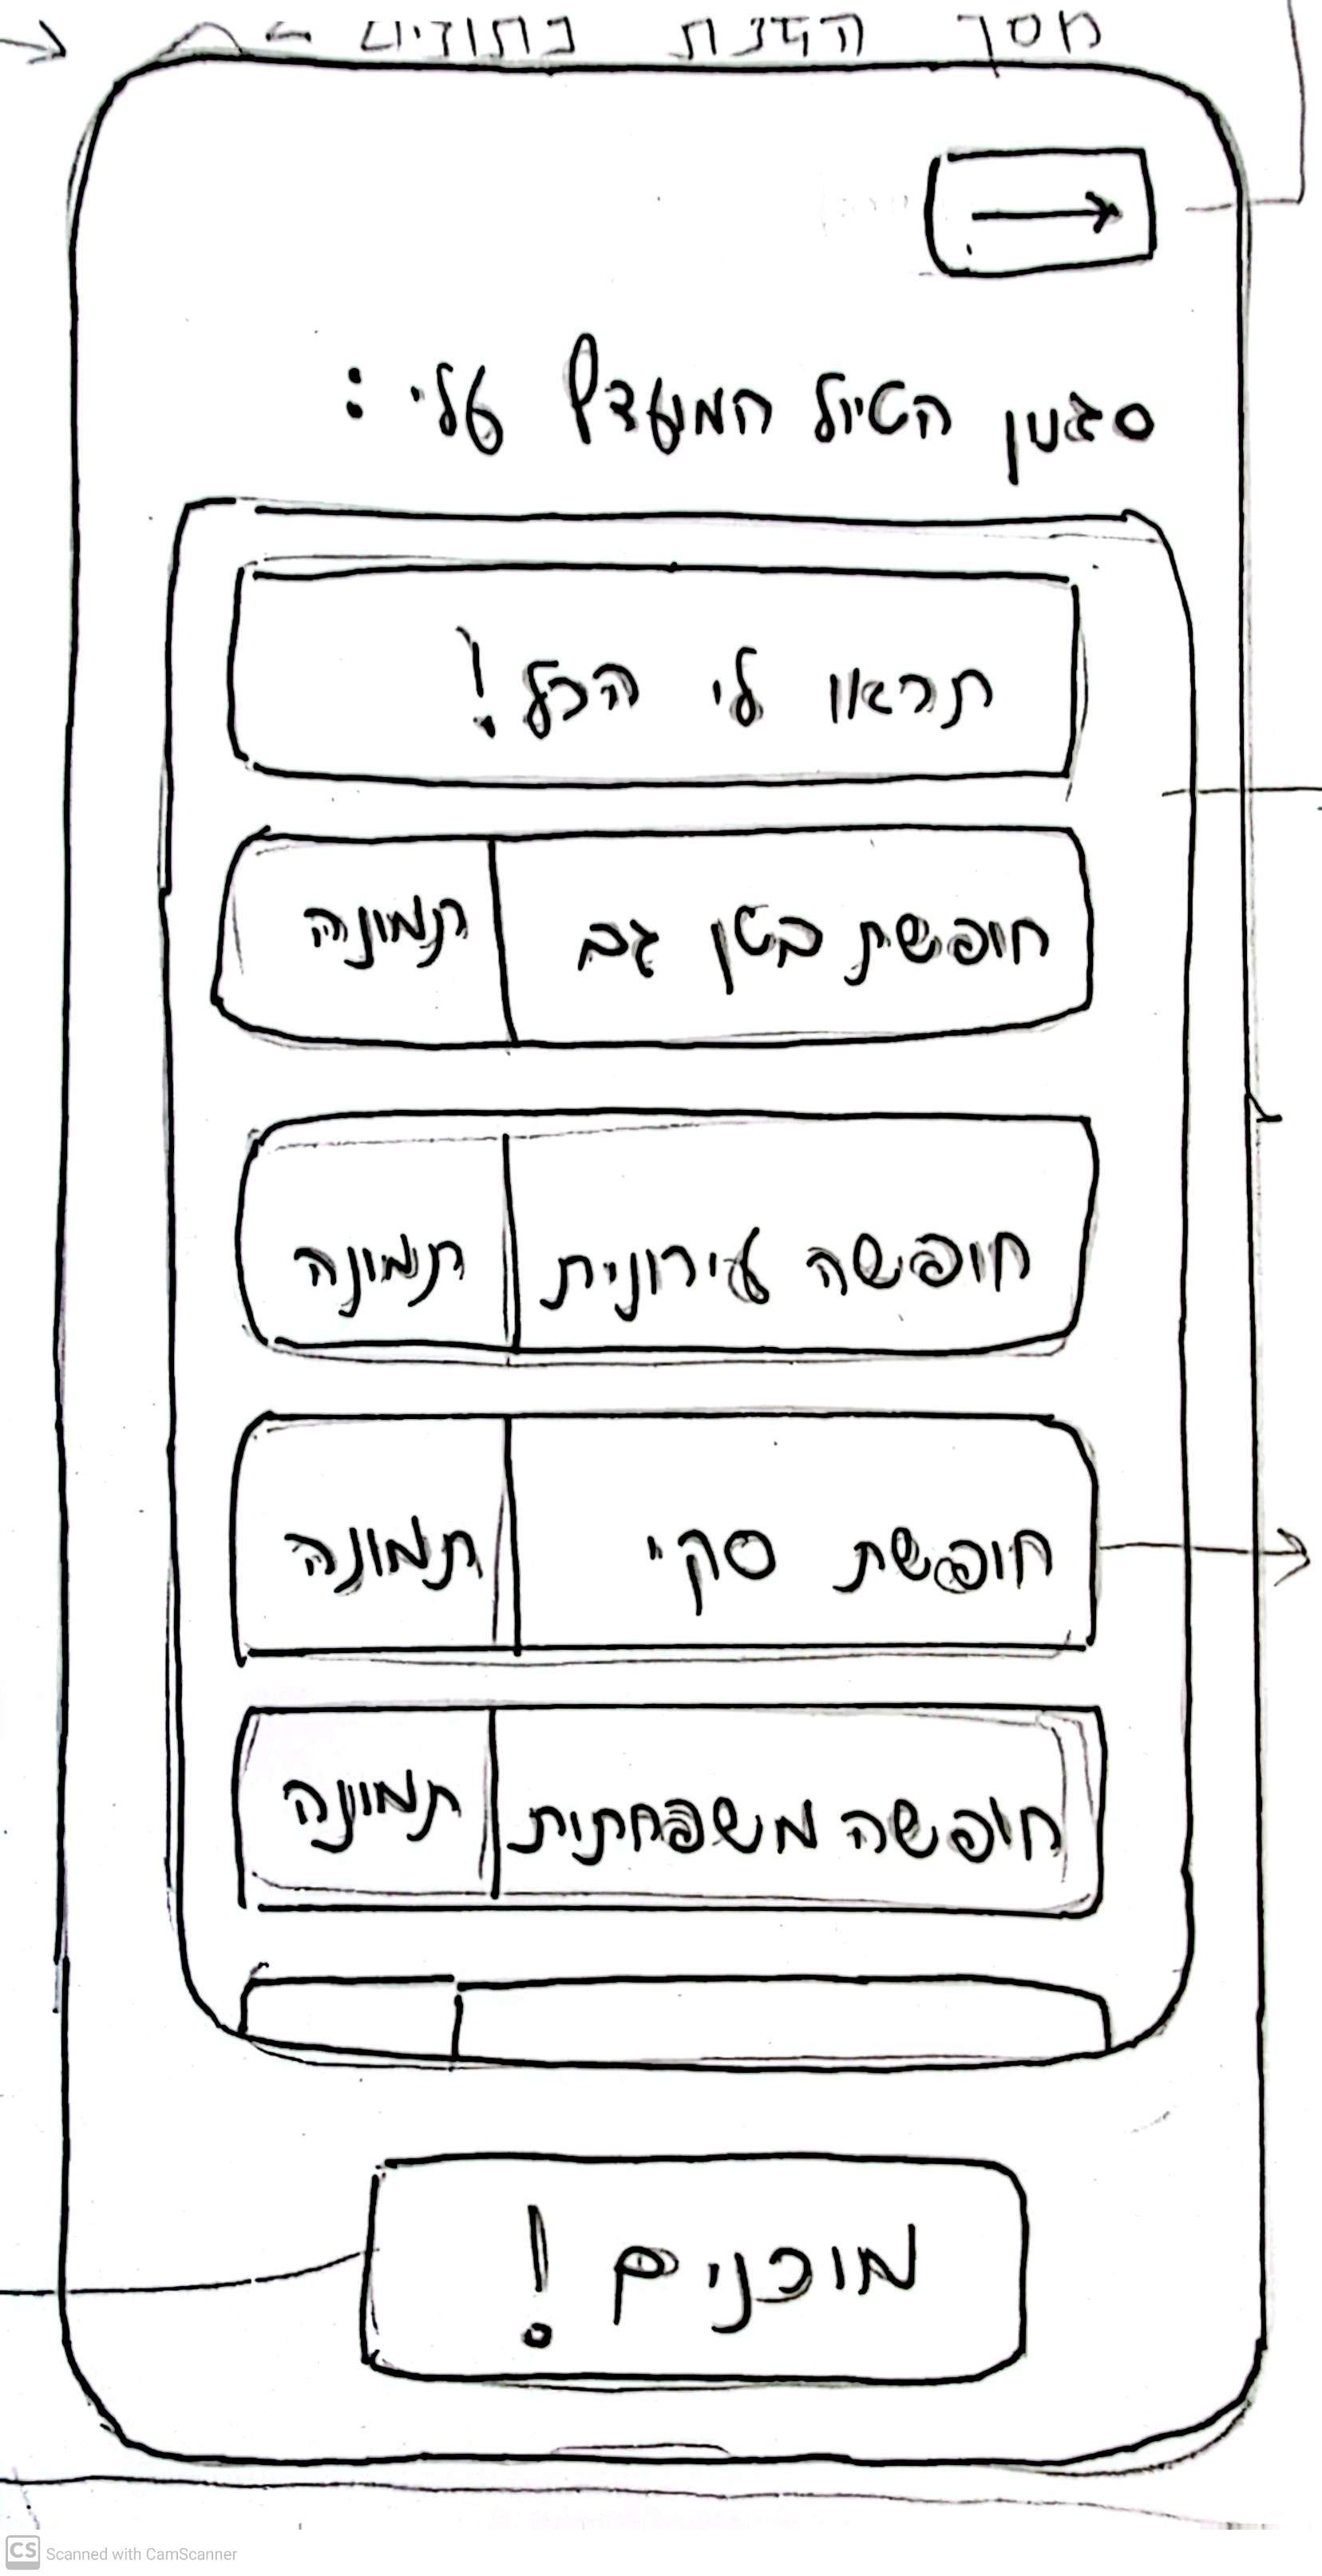 מסך הזנת נתונים
סגנון הטיול המועדף עלי:
תראו לי הכל!
חופשת בטן גב תמונה
חופשה עירונית תמונה
חופשת סקי תמונה
חופשה משפחתית תמונה
מוכנים!
CS Scanned with CamScanner